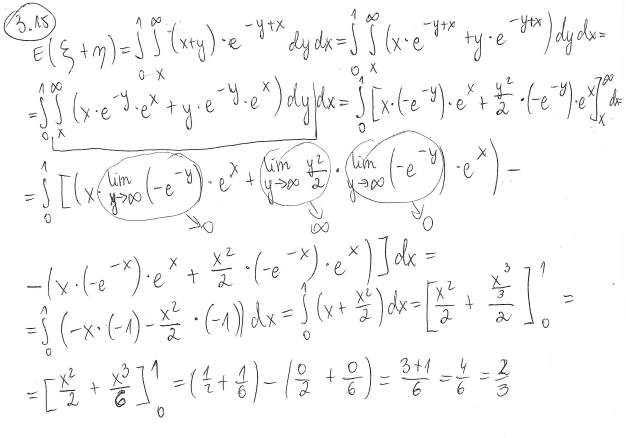 3.15
E(ξ+η) = ∫₀¹ ∫ₓ^∞ (x+y)·e^{-y+x} dy dx = ∫₀¹ ∫ₓ^∞ (x·e^{-y+x} + y·e^{-y+x}) dy dx =
= ∫₀¹ ∫ₓ^∞ (x·e^{-y}·e^x + y·e^{-y}·e^x) dy dx = ∫₀¹ [x·(-e^{-y})·e^x + y²/2·(-e^{-y})·e^x]ₓ^∞ dx
= ∫₀¹ [(x·lim_{y→∞}(-e^{-y})·e^x + lim_{y→∞} y²/2 · lim_{y→∞}(-e^{-y})·e^x) -
→0 ∞ 0
-(x·(-e^{-x})·e^x + x²/2·(-e^{-x})·e^x)] dx =
= ∫₀¹ (-x·(-1) - x²/2·(-1)) dx = ∫₀¹ (x + x²/2) dx = [x²/2 + (x³/3)/2]₀¹ =
= [x²/2 + x³/6]₀¹ = (1/2 + 1/6) - (0/2 + 0/6) = (3+1)/6 = 4/6 = 2/3